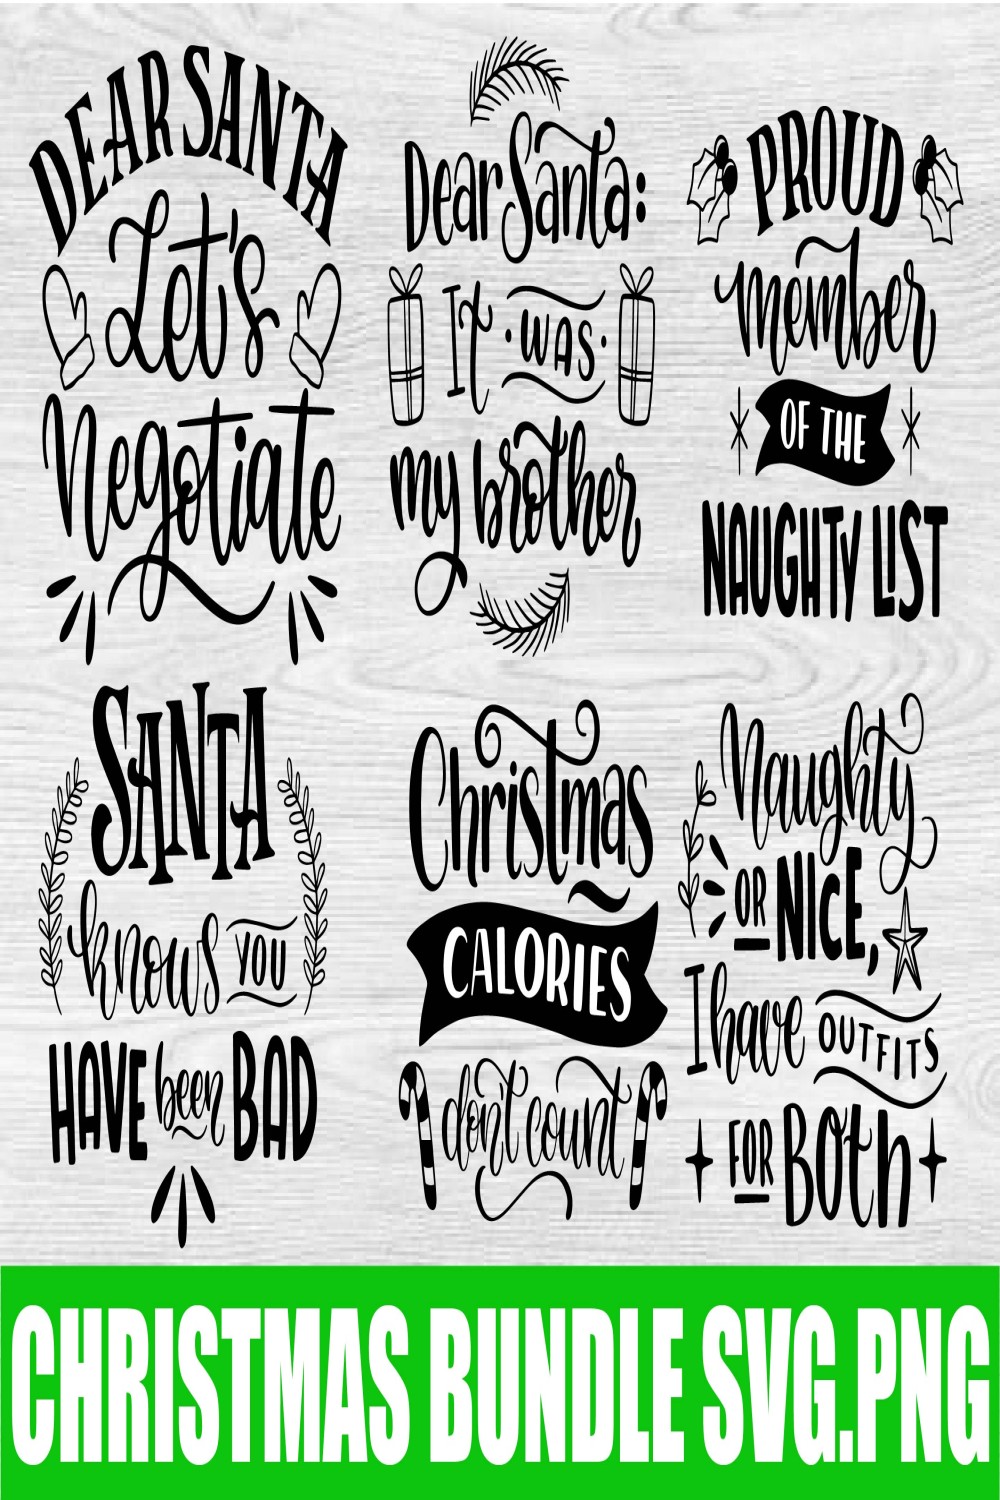 DEAR SANTA
Let's
Negotiate
Dear Santa:
It · WAS ·
my brother
PROUD
member
OF THE
NAUGHTY LIST
SANTA
knows YOU
HAVE been BAD
Christmas
CALORIES
don't count
Naughty
OR NICE,
I have OUTFITS
FOR BOth
CHRISTMAS BUNDLE SVG.PNG